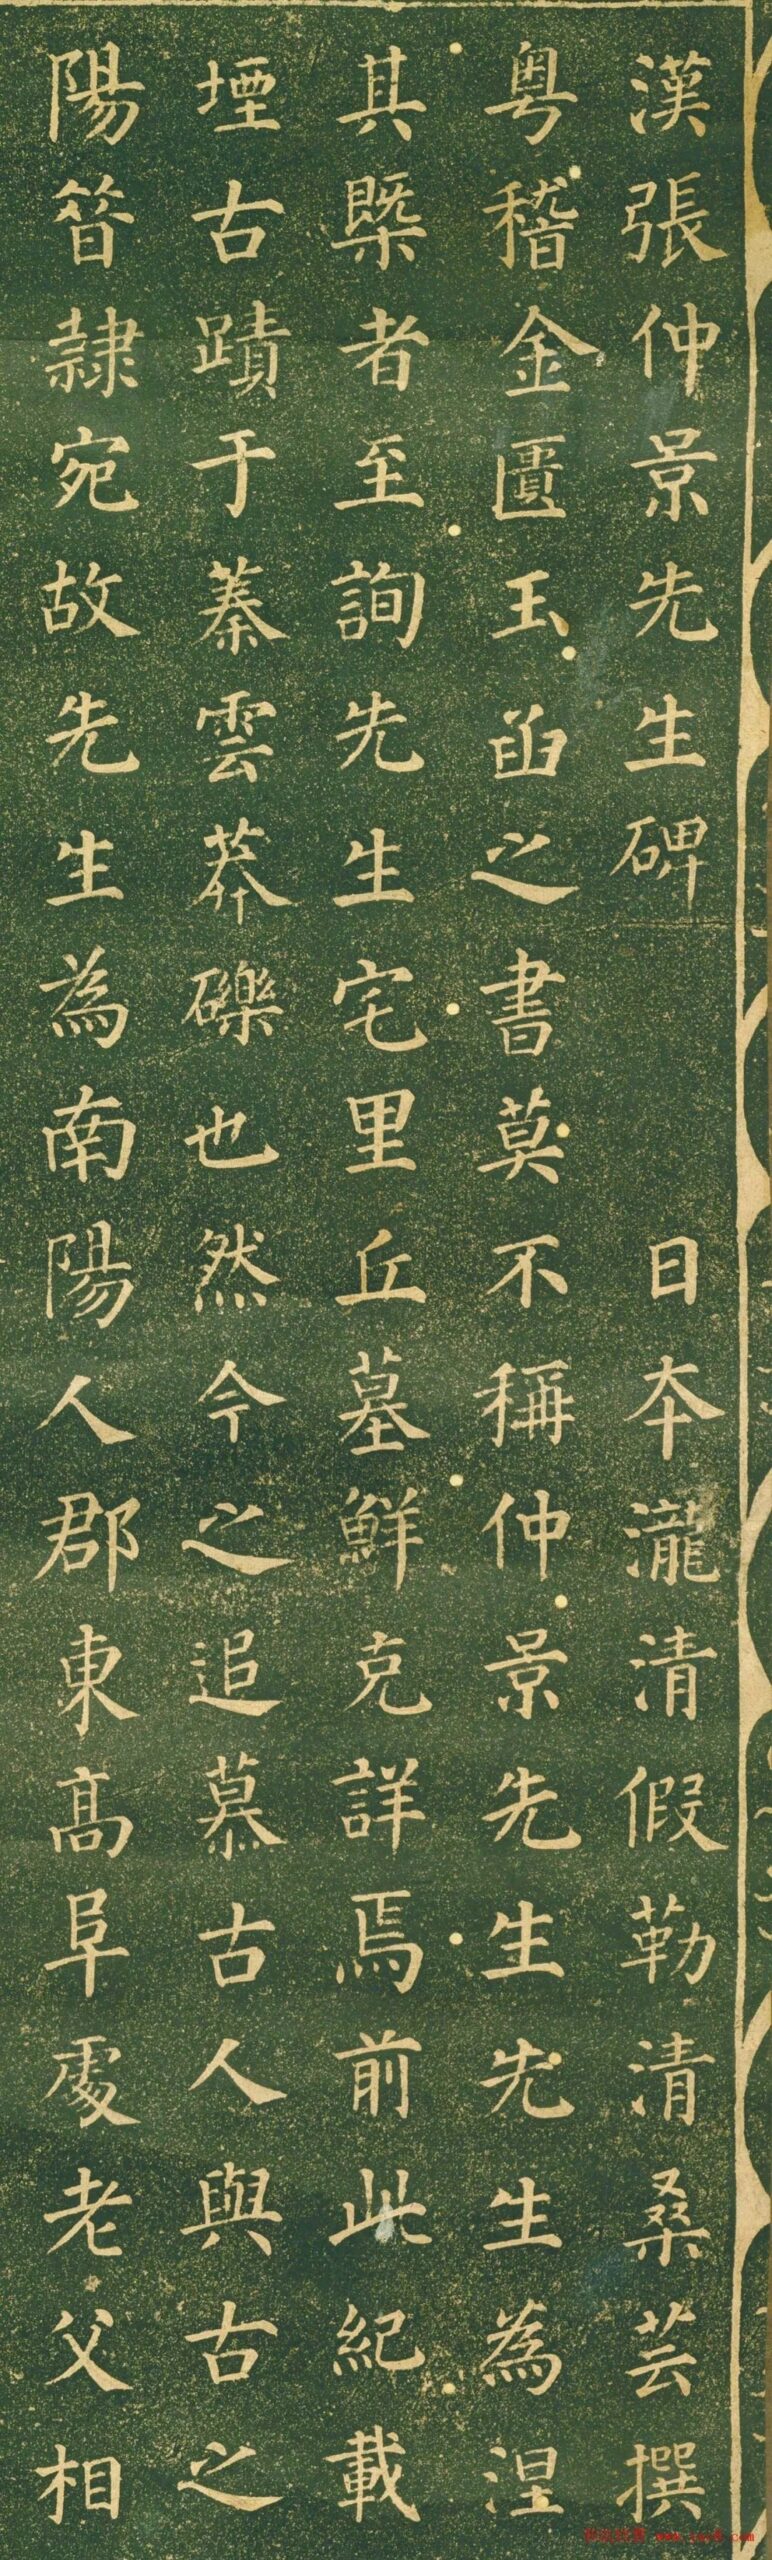 漢張仲景先生碑 日本瀧清假勒清桑芸撰
粤稽金匱玉函之書莫不稱仲景先生先生為涅
其槩者至詢先生宅里丘墓鮮克詳焉前此紀載
堙古蹟于蓁雲莽礫也然今之追慕古人與古之
陽簪隷宛故先生為南陽人郡東高阜處老父相